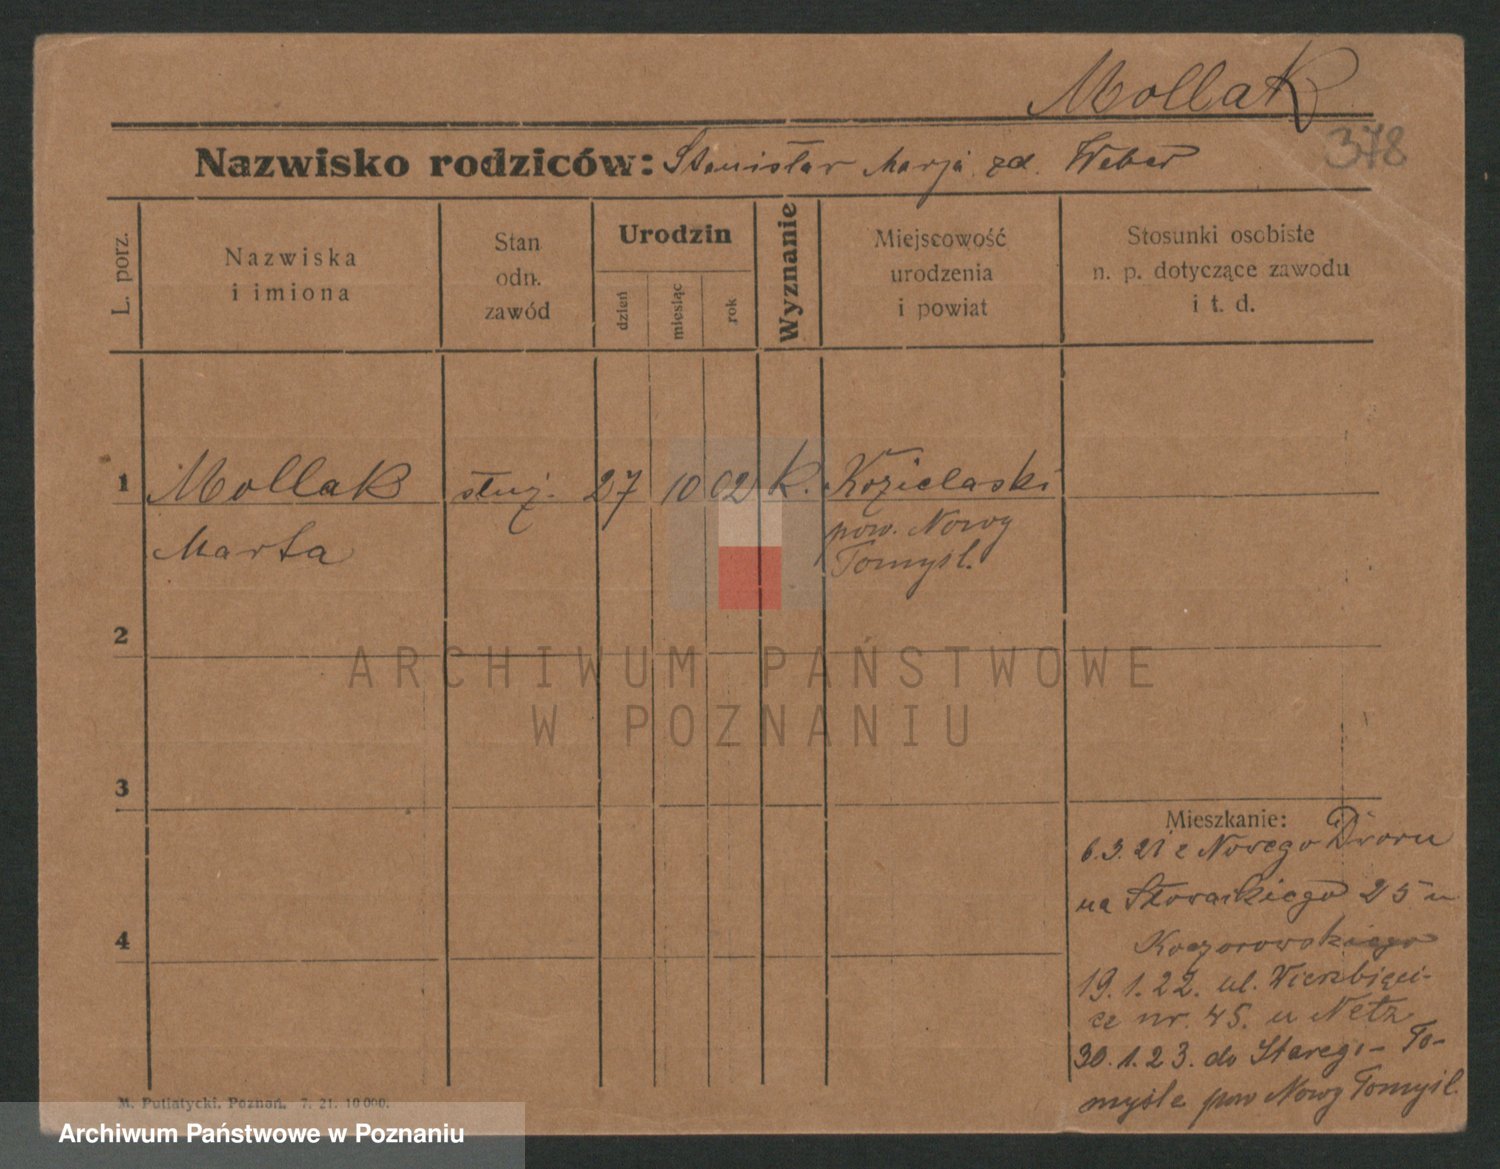 Mollak
378
Nazwisko rodziców: Stanisław Marja zd. Weber
L. porz.
Nazwiska
i imiona
Stan
odn.
zawód
Urodzin
dzień
miesiąc
rok
Wyznanie
Miejscowość
urodzenia
i powiat
Stosunki osobiste
n. p. dotyczące zawodu
i t. d.
1 Mollak służ. 27 10 02 k. Kozielaski
Marta pow. Nowy
Tomyśl.
2
3
4
Mieszkanie:
6.3.21 z Nowego Dworu
na Słowackiego 25 u
Kaczorowskiego
19.1.22. ul. Wierzbięci-
ce nr. 45. u Netz
30.1.23. do Starego- To-
myśla pow Nowy Tomyśl.
M. Putiatycki, Poznań. 7. 21. 10000.
ARCHIWUM PAŃSTWOWE
W POZNANIU
Archiwum Państwowe w Poznaniu